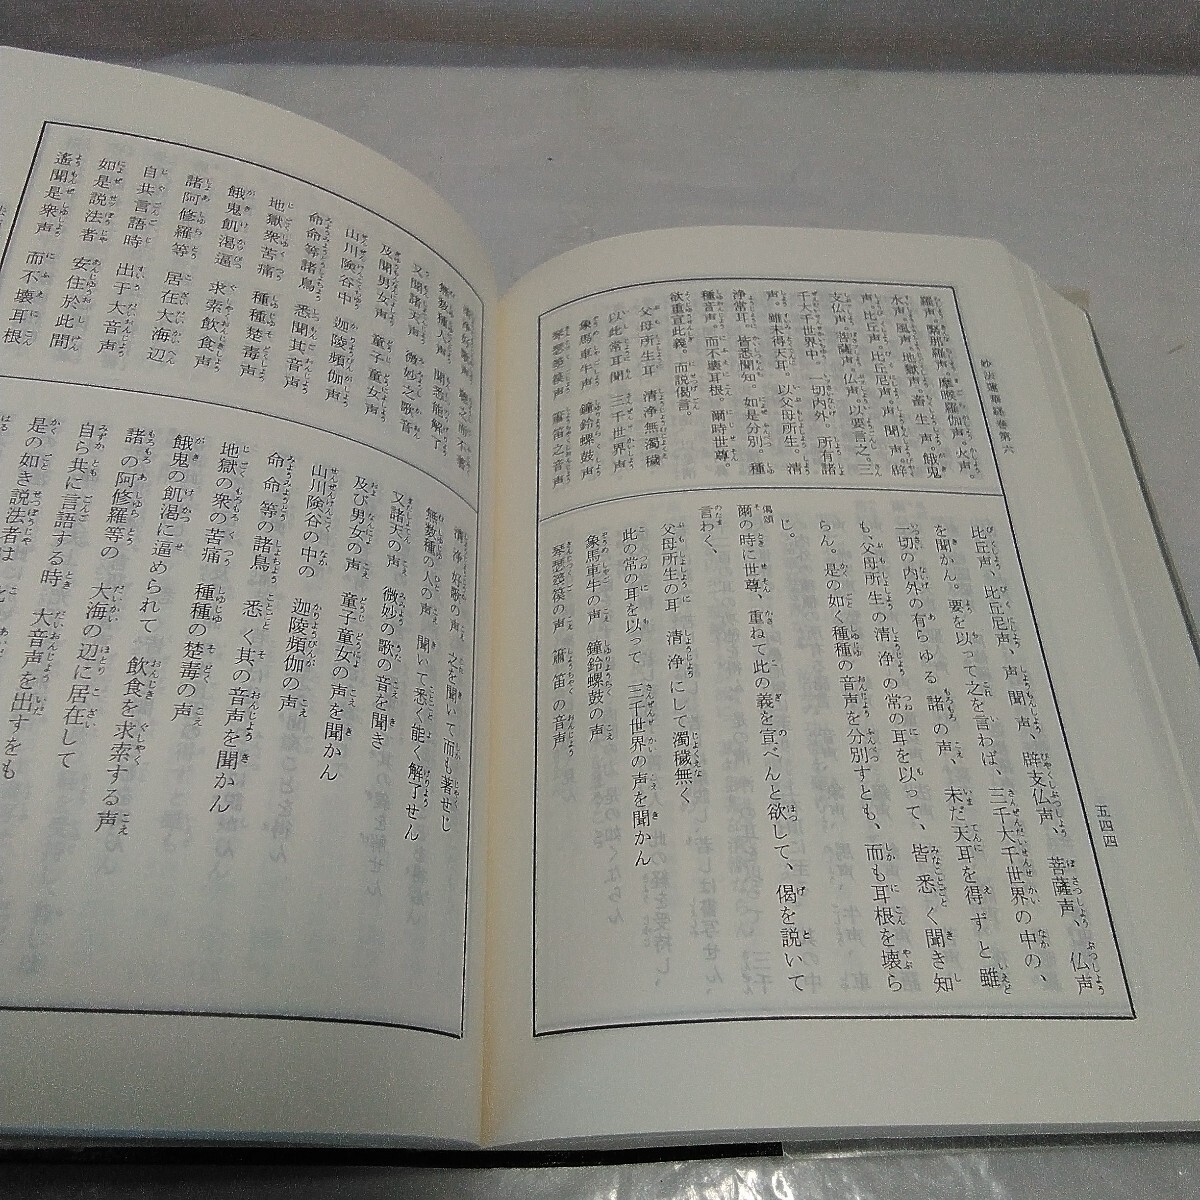 妙法蓮華経巻第六
五四四
羅声。緊那羅声。摩睺羅伽声。火声。
水声。風声。地獄声。畜生声。餓鬼
声。比丘声。比丘尼声。声聞声。辟
支仏声。菩薩声。仏声。以要言之。三
千大千世界中。一切内外。所有諸
声。雖未得天耳。以父母所生。清
浄常耳。皆悉聞知。如是分別。種
種音声。而不壊耳根。爾時世尊。
欲重宣此義。而説偈言。
父母所生耳 清浄無濁穢
以此常耳聞 三千世界声
象馬車牛声 鐘鈴螺鼓声
琴瑟箜篌声 簫笛之音声
比丘声、比丘尼声、声聞声、辟支仏声、菩薩声、仏声
を聞かん。要を以って之を言わば、三千大千世界の中の、
一切の内外の有らゆる諸の声、未だ天耳を得ずと雖
も、父母所生の清浄の常の耳を以って、皆悉く聞き知
らん。是の如く種種の音声を分別すとも、而も耳根を壊ら
じ。
偈頌
爾の時に世尊、重ねて此の義を宣べんと欲して、偈を説いて
言わく、
父母所生の耳 清浄にして濁穢無く
此の常の耳を以って 三千世界の声を聞かん
象馬車牛の声 鐘鈴螺鼓の声
琴瑟箜篌の声 簫笛の音声
清浄好歌声 聴之而不著
無数種人声 聞悉能解了
又聞諸天声 微妙之歌音
及聞男女声 童子童女声
山川険谷中 迦陵頻伽声
命命等諸鳥 悉聞其音声
地獄衆苦痛 種種楚毒声
餓鬼飢渇逼 求索飲食声
諸阿修羅等 居在大海辺
自共言語時 出于大音声
如是説法者 安住於此間
遙聞是衆声 而不壊耳根
清浄好歌の声 之を聞いて而も著せじ
無数種の人の声 聞いて悉く能く解了せん
又諸天の声 微妙の歌の音を聞き
及び男女の声 童子童女の声を聞かん
山川険谷の中の 迦陵頻伽の声
命命等の諸鳥 悉く其の音声を聞かん
地獄の衆の苦痛 種種の楚毒の声
餓鬼の飢渇に逼められて 飲食を求索する声
諸の阿修羅等の 大海の辺に居在して
自ら共に言語する時 大音声を出すをも
是の如き説法者は